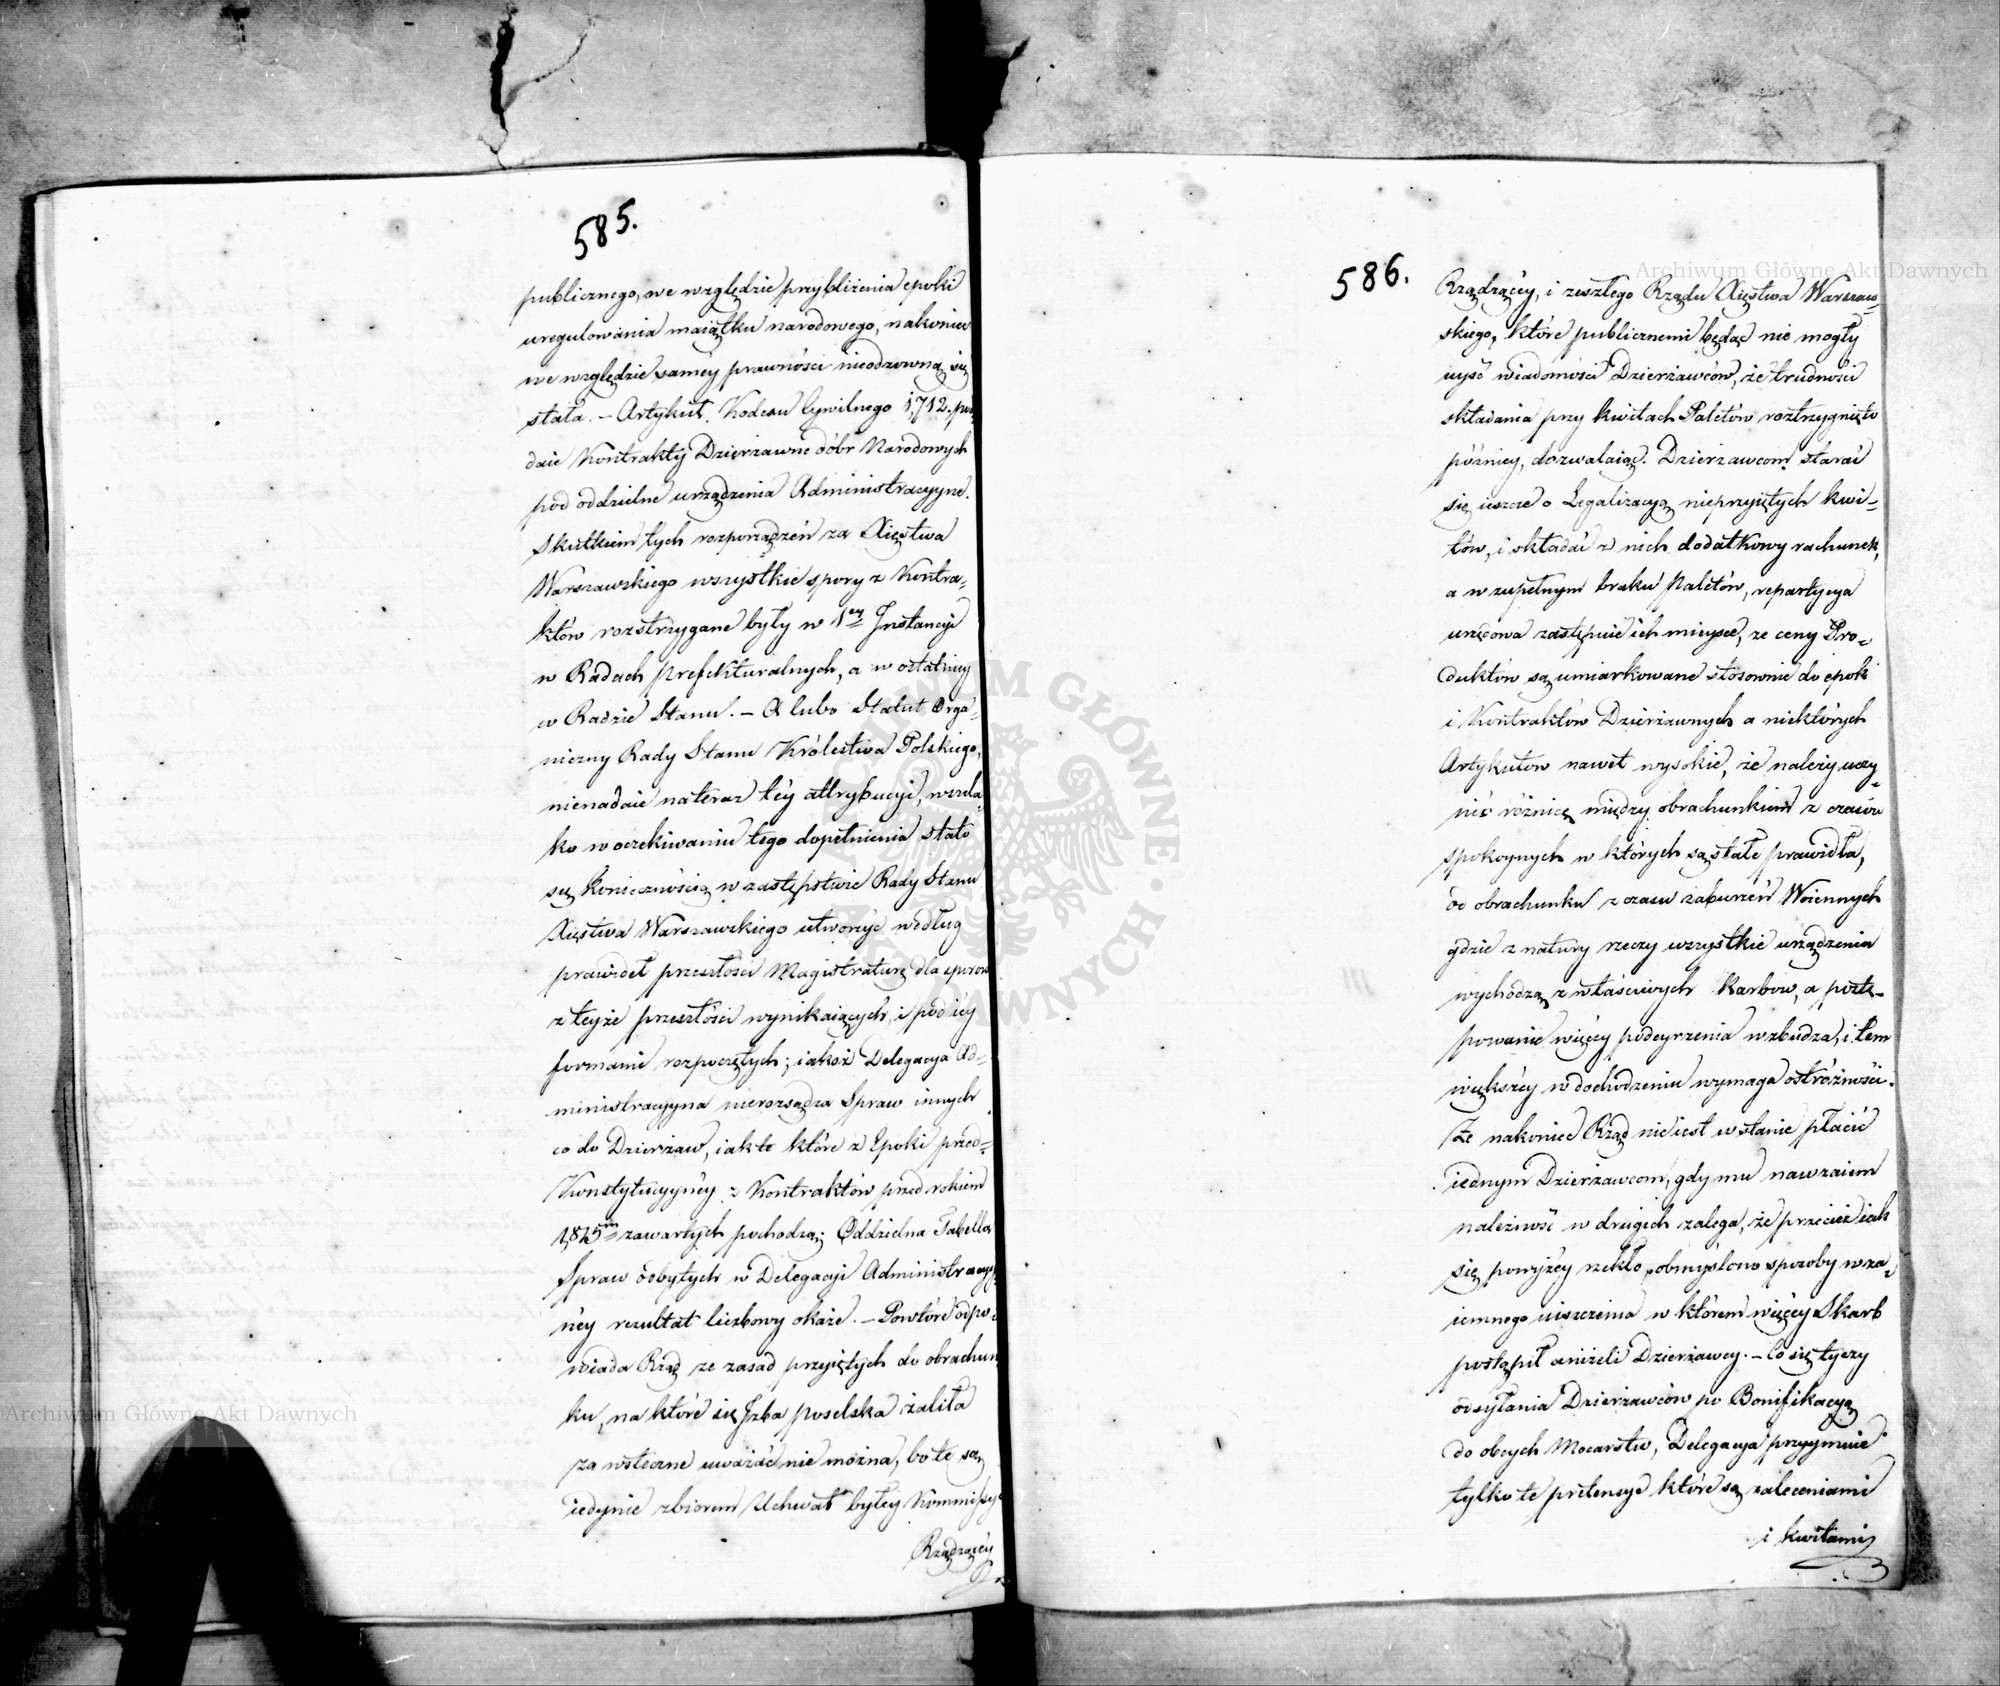 585.
publicznego, we względzie przybliżenia epoki
uregulowania maiątku narodowego, nakoniec
we względzie samey prawności nieodzowną się
stała. – Artykuł Kodexu Cywilnego 1,712. pod
daie Kontrakty Dzierżawne dóbr Narodowych
pod oddzielne urządzenia Administracyyne.
Skutkiem tych rozporządzeń za Xięstwa
Warszawskiego wszystkie spory z Kontra-
któw rozstrzygane były w 1ey Instancji
w Radach prefekturalnych, a w ostatniey
w Radzie Stanu. – A lubo Statut Orga-
niczny Rady Stanu Królestwa Polskiego,
nienadaie nateraz téy attrybucyi, wszela-
ko w oczekiwaniu tego dopełnienia stało
się koniecznością w zastępstwie Rady Stanu
Xięstwa Warszawskiego utworzyć według
prawideł przeszłości Magistraturę dla sporow
z teyże przeszłości wynikaiących, i pod iéy
formami rozpoczętych; iakoż Delegacya Ad-
ministracyyna nierozsądza Spraw innych
co do Dzierżaw, iak te które z Epoki przed-
Konstytucyyney z Kontraktów przed rokiem
1,815m zawartych pochodzą; Oddzielna Tabella
Spraw odbytych w Delegacyi Administracyy-
néy rezultat liczbowy okaże. – Powtóre odpo-
wiada Rząd ze zasad przyiętych do obrachun
ku, na które się Izba poselska żaliła
za wsteczne uważać nie można, bo te są
iedynie zbiorem Uchwał byłey Kommissyi
Rządzącéy
586.
Rządzącéy, i zeszłego Rządu Xięstwa Warszaw-
skiego, które publicznemi będąc nie mogły
uyść wiadomości Dzierżawców, że trudności
składania przy kwitach Paletów roztrzygnięto
późniey, dozwalaiąc Dzierżawcom starać
się ieszcze o Legalizacyą nieprzyiętych kwi-
tów, i składać z nich dodatkowy rachunek,
a w zupełnym braku Paletów, repartycya
urzędowa zastępuie ich mieysce, ze ceny Pro-
duktów są umiarkowane stosownie do epoki
i Kontraktów Dzierżawnych a niektórych
Artykułow nawet wysokie, że należy uczy-
nić różnicę między obrachunkiem z czasów
spokoynych w których są stałe prawidła,
od obrachunku z czasu zaburzeń Woiennych
gdzie z natury rzeczy wszystkie urządzenia
wychodzą z właściwych karbow, a postę-
powanie więcéy podeyrzenia wzbudza, i tem
większéy w dochodzeniu wymaga ostróżności.
Że nakoniec Rząd nie iest w stanie płacić
iednym Dzierżawcom, gdy mu nawzaiem
należność w drugich zalega, że przecież iak
się powyżéy rzekło, obmyślono sposoby wza-
iemnego uiszczenia w którem więcéy Skarb
postąpił aniżeli Dzierżawcy. – Co się tyczy
odsyłania Dzierżawców po Bonifikacyą
do obcych Mocarstw, Delegacya przyymuie
tylko te pretensye które są zaleceniami
i kwitami
Archiwum Główne Akt Dawnych
Archiwum Główne Akt Dawnych
ARCHIWUM GŁÓWNE AKT DAWNYCH